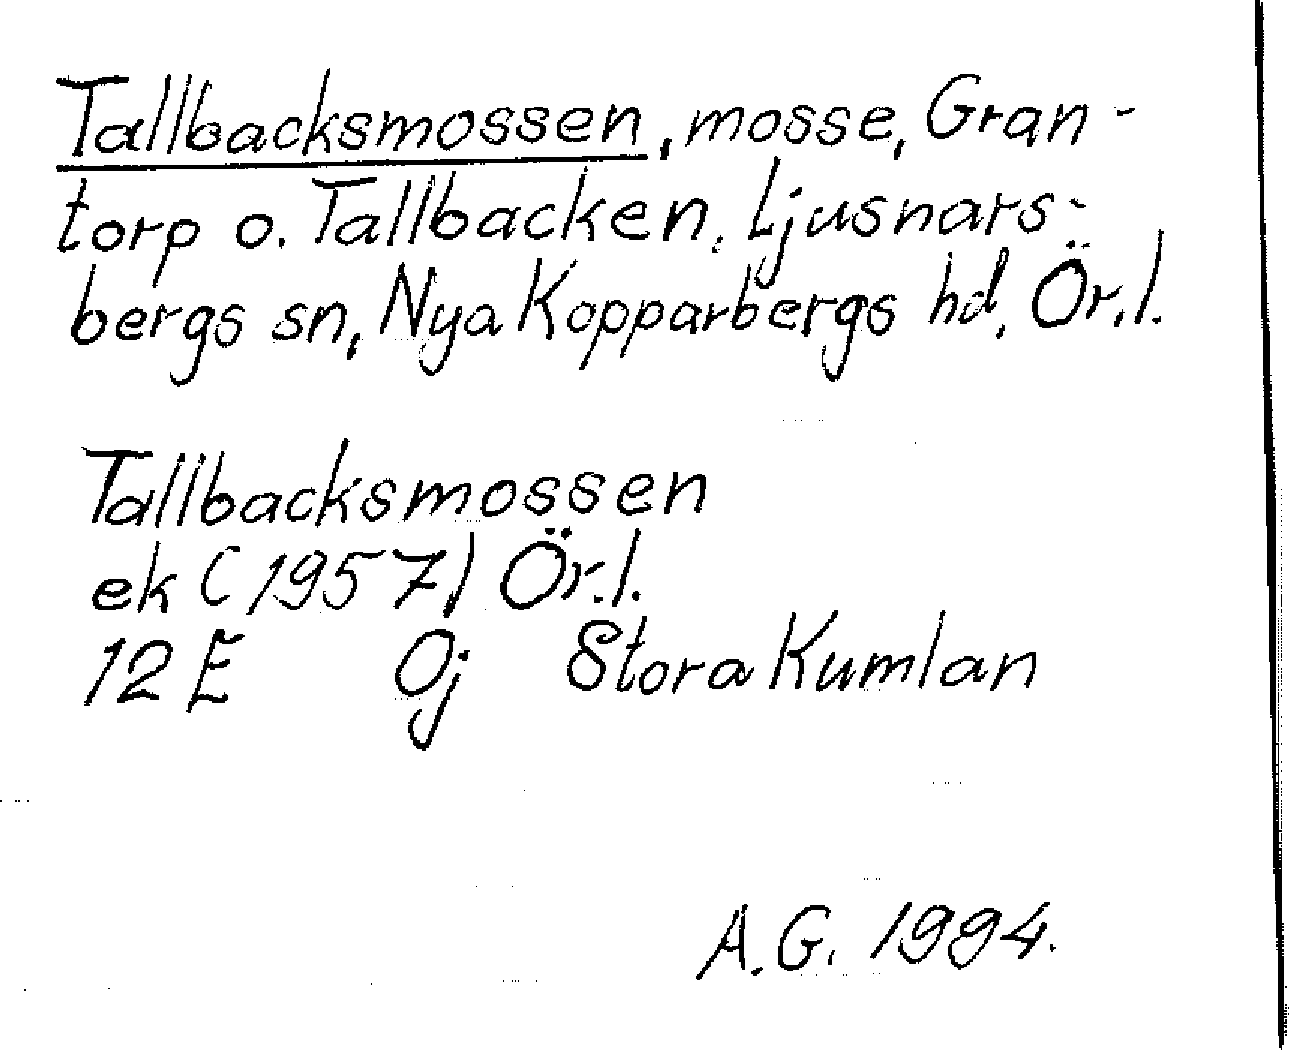 Tallbacksmossen, mosse, Gran-
torp o. Tallbacken, Ljusnars-
bergs sn, Nya Kopparbergs hd, Ör.l.
Tallbacksmossen
ek (1957) Ör.l.
12E 0j Stora Kumlan
A.G. 1994.